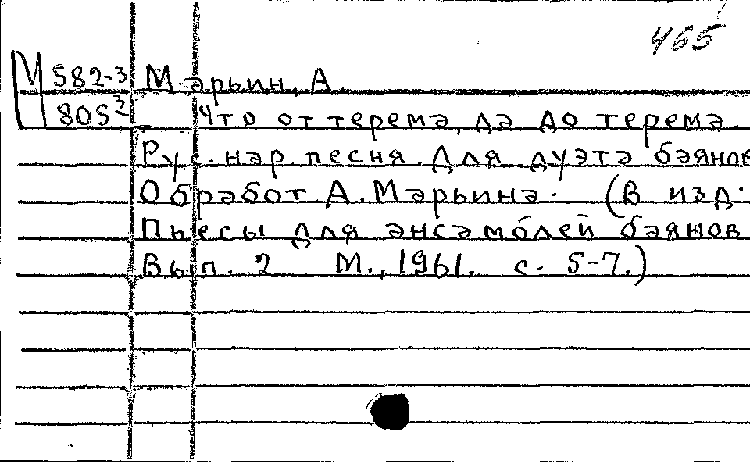 465
М 582-3 Марьин, А.
805² Что от терема, да до терема
Рус. нар. песня. Для дуэта баянов
Обработ. А. Марьина. (В изд.:
Пьесы для ансамблей баянов
Вып. 2 М., 1961. с. 5-7.)